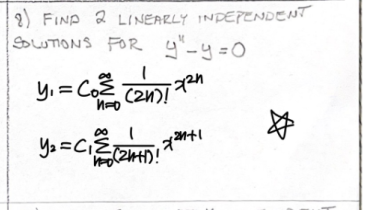 8) FIND 2 LINEARLY INDEPENDENT
SOLUTIONS FOR y'' - y = 0
y₁ = C₀ ∑_{n=0}^{∞} 1/(2n)! x^{2n}
y₂ = C₁ ∑_{n=0}^{∞} 1/(2n+1)! x^{2n+1}